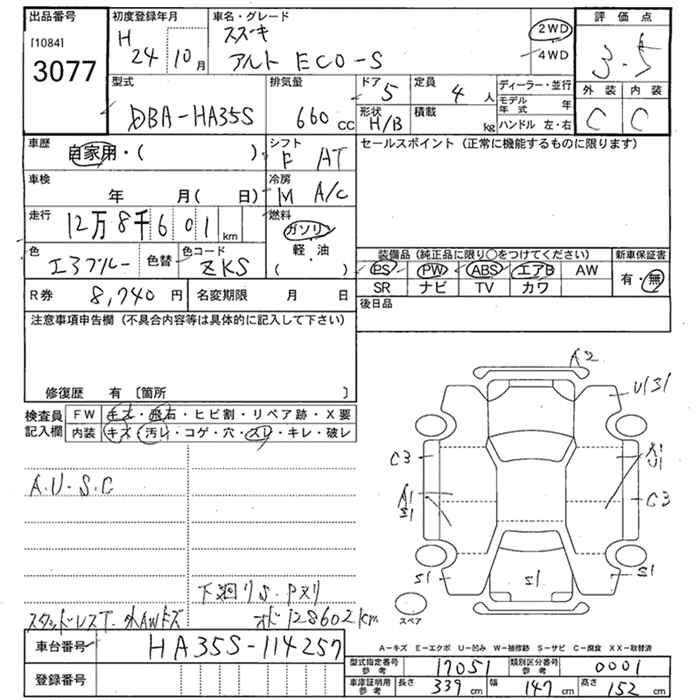 出品番号
[1084]
3077
初度登録年月
H 24 10月
車名・グレード
スズキ
アルト ECO-S
2WD
4WD
評価点
3.5
外装 内装
C C
型式
DBA-HA35S
排気量
660 cc
ドア 5
形状 H/B
定員 4 人
積載 kg
ディーラー・並行
モデル年式 年
ハンドル 左・右
車歴
自家用・( )
シフト
F AT
セールスポイント (正常に機能するものに限ります)
車検
年 月( 日)
冷房
M A/C
走行
12万8千601km
燃料
ガソリン
軽・油
( )
色
エアブルー
色替
色コード
ZKS
装備品 (純正品に限り○をつけてください)
新車保証書
PS PW ABS エアB AW
SR ナビ TV カワ
有・無
R券 8,740円
名変期限 月 日
後日品
注意事項申告欄 (不具合内容等は具体的に記入して下さい)
修復歴 有 〔箇所 〕
検査員記入欄
FW キズ・飛石・ヒビ割・リペア跡・X要
内装 キズ・汚レ・コゲ・穴・スレ・キレ・破レ
A.U.S.C
下廻りS.Pヌリ
スタッドレスT.外AWキズ
オド128602km
A2
U1S1
C3
A1
U1
A1
S1
C3
S1
S1
S1
スペア
A-キズ E-エクボ U-凹み W-補修跡 S-サビ C-腐食 XX-取替済
車台番号 HA35S-114257
登録番号
型式指定番号 参考 17051
類別区分番号 参考 0001
車庫証明用 参考 長さ 339 cm 幅 147 cm 高さ 152 cm